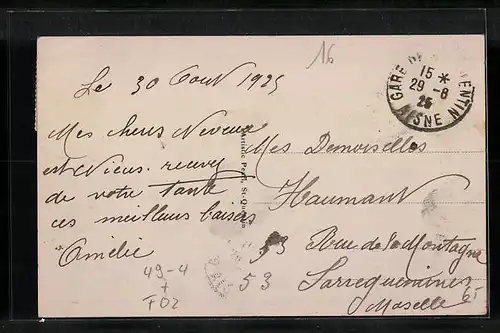 16
Le 30 Aout 1925
Mes chers Neveux
et Nieces. recevez
de votre Tante
ces meilleurs baisers
Amélie
49-4
+
F02
53
GARE DE ST QUENTIN
15 *
29-8
25
AISNE
Mes Demoiselles
Haumant
53 Rue de la Montagne
Sarreguemines
Moselle